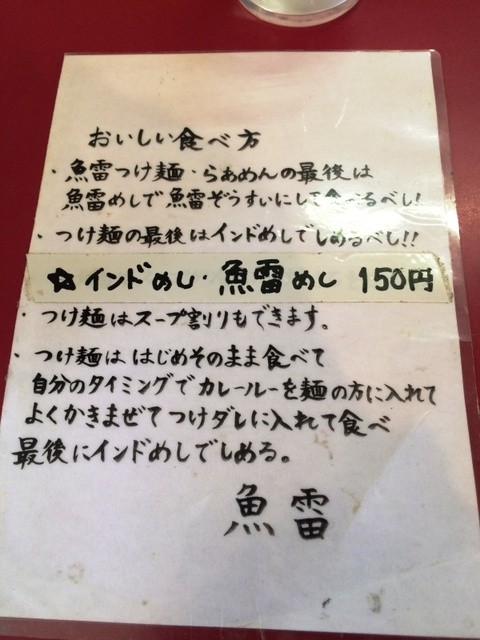 おいしい食べ方
・魚雷つけ麺・らぁめんの最後は
魚雷めしで魚雷ぞうすいにして食べるべし!
・つけ麺の最後はインドめしでしめるべし!!
☆インドめし・魚雷めし 150円
・つけ麺はスープ割りもできます。
・つけ麺は はじめそのまま食べて
自分のタイミングでカレールーを麺の方に入れて
よくかきまぜてつけダレに入れて食べ
最後にインドめしでしめる。
魚雷